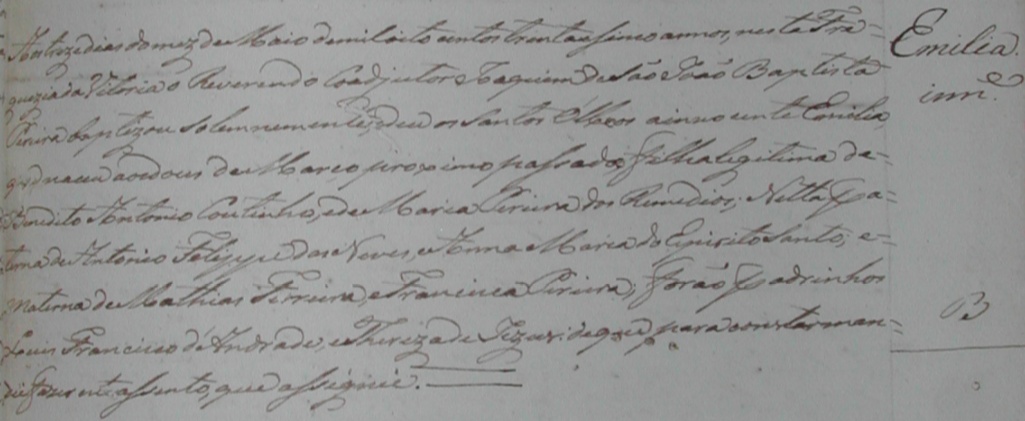 Aos trez dias do mez de Maio de mil oito centos trenta e sinco annos, nesta Fre=
guezia da Vitoria o Reverendo Coadjutor Joaquim de São João Baptista
Pereira baptizou solemnemente, e deu os Santos Oleos a innocente Emilia,
que naceu aos dous de Março proximo passado, filha legitima de=
Benedito Antonio Coutinho, e de Maria Pereira dos Remedios; Netta Pa=
terna de Antonio Felippe das Neves, e Anna Maria do Espirito Santo, e=
Materna de Mathias Ferreira, e Francisca Pereira; forão Padrinhos
Luis Francisco d'Andrade, e Thereza de Jezus: do que para constar man=
dei fazer este assento, que assignei.
Emilia.
inn.e
B